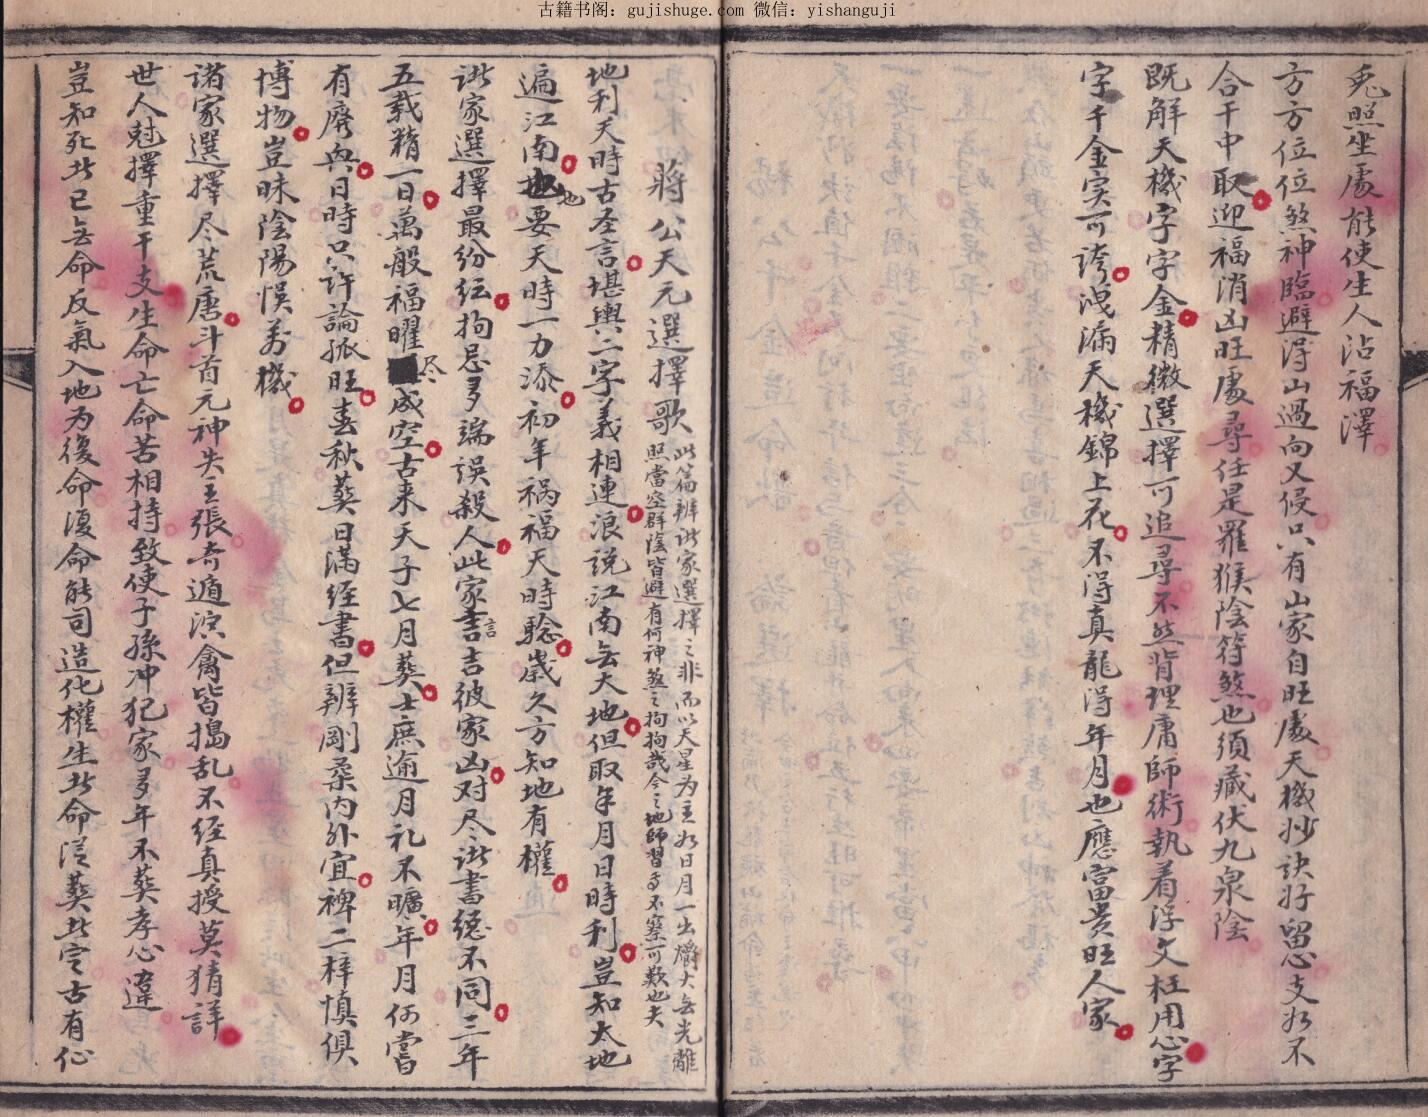 古籍书阁：gujishuge.com 微信：yishanguji
兎照坐處能使生人沾福澤
方方位位煞神臨避淂山過向又侵只有山家自旺處天機抄訣好留心支如不
合干中取迎福消凶旺處尋任是羅猴陰符煞也須藏伏九泉陰
既解天機字字金精微選擇可追尋不然背理庸師術執着浮文枉用心字
字千金实可誇洩漏天機錦上花不得真龍得年月也應富貴旺人家
蔣公天元選擇歌
此篇辨諸家選擇之非而以天星为主如日月一出爝火無光離
照當空群陰皆避有何神煞之拘拘哉今之地師習而不察可歎也夫
地利天時古圣言堪輿二字義相連浪説江南無大地但取年月日時利豈知大地
遍江南地要天時一力添初年祸福天時驗歲久方知地有權
諸家選擇最纷纭拘忌多端誤殺人此家言吉彼家凶对尽諸書總不同三年
五载精一日萬般福曜尽成空古来天子七月葬士庶逾月礼不曠年月何嘗
有廃興日時只许論孤旺春秋葵日满經書但辨剛柔内外宜裨二梓慎俱
博物豈昧陰陽悞事機
諸家選擇尽荒唐斗首元神失主張奇遁演禽皆搗乱不经真授莫猜詳
世人尅擇重干支生命亡命苦相持致使子孫冲犯家多年不葬孝心違
豈知死者已無命反氣入地为後命復命能司造化權生者命從葬者定古有仙